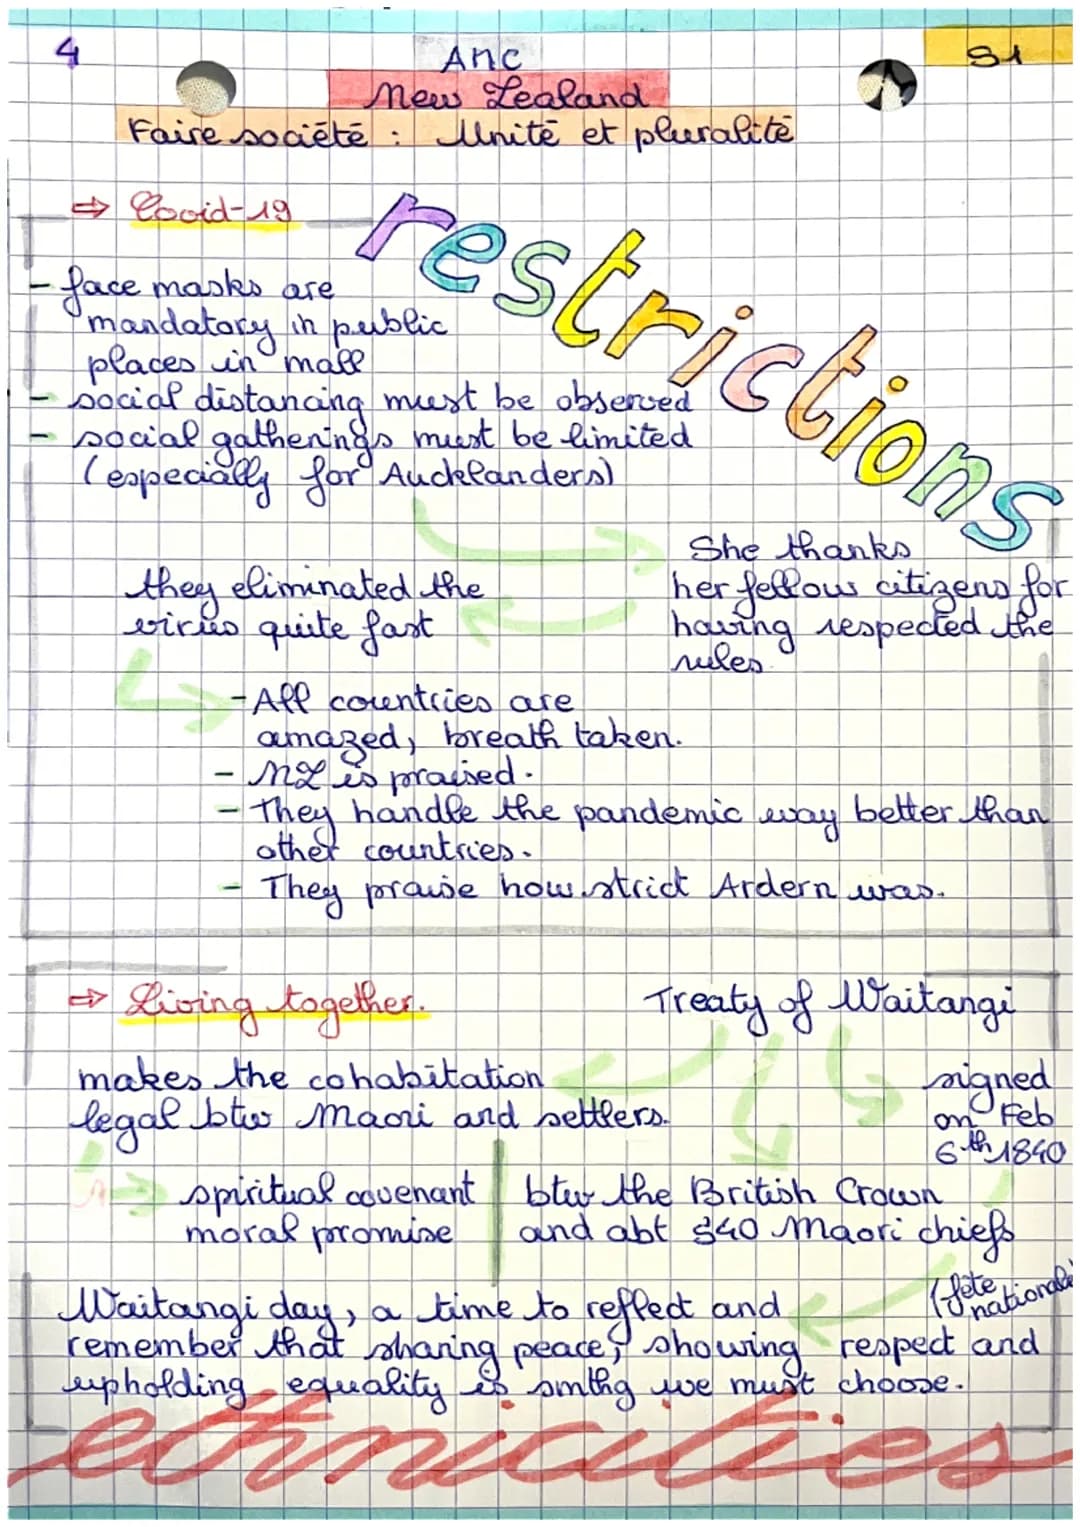 4
Anc
S1
New Zealand
Faire société : Unité et pluralité
⇒ Covid-19
restrictions
- face masks are
mandatory in public
places in mall
- social distancing must be observed
- social gatherings must be limited
(especially for Aucklanders)
She thanks
her fellow citizens for
having respected the
rules.
they eliminated the
virus quite fast
- All countries are
amazed, breath taken.
- NZ is praised.
- They handle the pandemic way better than
other countries.
- They praise how strict Ardern was.
⇒ Living together.
Treaty of Waitangi
makes the cohabitation
legal btw Maori and settlers.
signed
on Feb
6th 1840
spiritual covenant
moral promise
btw the British Crown
and abt 540 Maori chiefs
(fête
nationale)
Waitangi day, a time to reflect and
remember that sharing peace, showing respect and
upholding equality is smthg we must choose.
ethnicities